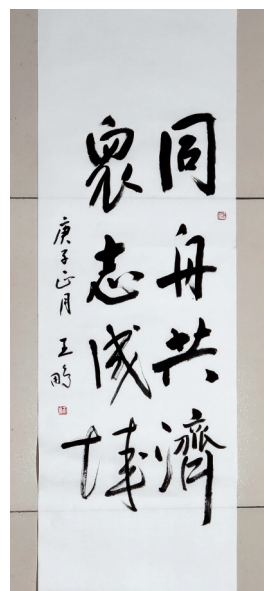 同舟共濟
衆志成城
庚子正月
王鹏